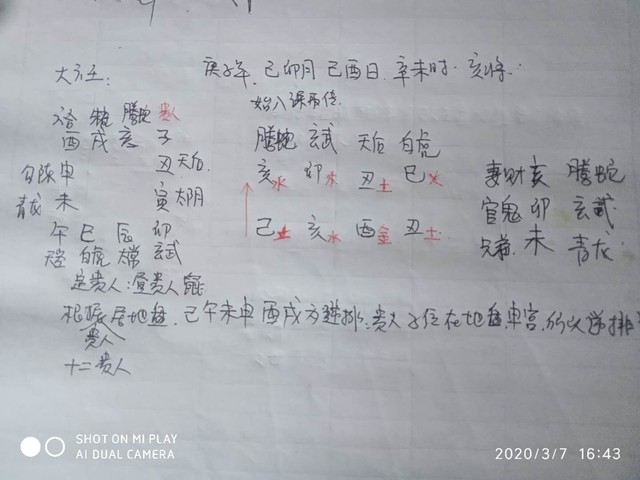 大六壬: 庚子年. 己卯月 己酉日. 辛未时. 亥将.
始入课再传
六合 朱 腾蛇 贵人
酉 戌 亥 子
腾蛇 玄武 天后 白虎
勾陈申 丑天后
亥水 卯木 丑土 巳火
妻财亥 腾蛇
青龙 未 寅太阴
官鬼 卯 玄武
午 巳 辰 卯
己土 亥水 酉金 丑土
兄弟. 未 青龙
空 白虎 常 玄武
定贵人: 昼贵人
根据居地盘. 巳午未申酉戌方逆排. 贵人子位在地盘. 申宫. 所以逆排
贵人
十二贵人
SHOT ON MI PLAY
AI DUAL CAMERA
2020/3/7 16:43